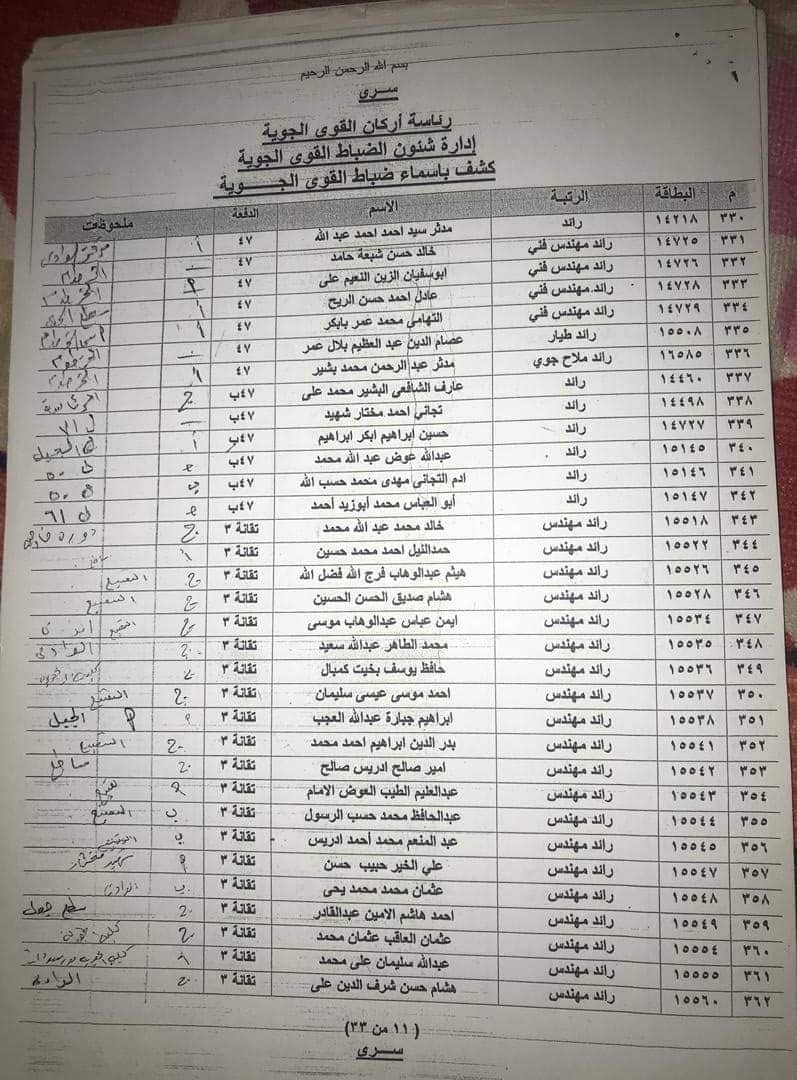 بسم الله الرحمن الرحيم
سرى
رئاسة أركان القوى الجوية
إدارة شئون الضباط القوى الجوية
كشف باسماء ضباط القوى الجوية
م البطاقة الرتبة الاسم الدفعة ملحوظات
٣٣٠ ١٤٢١٨ رائد مدثر سيد احمد احمد عبد الله ٤٧ أ
٣٣١ ١٤٧٢٥ رائد مهندس فني خالد حسن شيعة حامد ٤٧
٣٣٢ ١٤٧٢٦ رائد مهندس فني ابوسفيان الزين النعيم على ٤٧
٣٣٣ ١٤٧٢٨ رائد.مهندس فني عادل احمد حسن الريح ٤٧
٣٣٤ ١٤٧٢٩ رائد مهندس فني التهامي محمد عمر بابكر ٤٧
٣٣٥ ١٥٥٠٨ رائد طيار عصام الدين عبد العظيم بلال عمر ٤٧
٣٣٦ ١٦٥٨٥ رائد ملاح جوي مدثر عبد الرحمن محمد بشير ٤٧
٣٣٧ ١٤٤٦٠ رائد عارف الشافعى البشير محمد على ٤٧ب ج
٣٣٨ ١٤٤٩٨ رائد تجاني احمد مختار شهيد ٤٧ب
٣٣٩ ١٤٧٢٧ رائد حسين ابراهيم ابكر ابراهيم ٤٧ب أ
٣٤٠ ١٥١٤٥ رائد عبدالله عوض عبد الله محمد ٤٧ب
٣٤١ ١٥١٤٦ رائد ادم التجانى مهدى محمد حسب الله ٤٧ب
٣٤٢ ١٥١٤٧ رائد أبو العباس محمد أبوزيد أحمد ٤٧ب
٣٤٣ ١٥٥١٨ رائد مهندس خالد محمد عبد الله محمد تقانة ٣ ج
٣٤٤ ١٥٥٢٢ رائد مهندس حمدالنيل احمد محمد حسين تقانة ٣
٣٤٥ ١٥٥٢٦ رائد مهندس هيثم عبدالوهاب فرج الله فضل الله تقانة ٣ ج
٣٤٦ ١٥٥٢٨ رائد مهندس هشام صديق الحسن الحسين تقانة ٣ ج
٣٤٧ ١٥٥٣٤ رائد مهندس ايمن عباس عبدالوهاب موسى تقانة ٣ ج
٣٤٨ ١٥٥٣٥ رائد مهندس محمد الطاهر عبدالله سعيد تقانة ٣ ج
٣٤٩ ١٥٥٣٦ رائد مهندس حافظ يوسف بخيت كمبال تقانة ٣
٣٥٠ ١٥٥٣٧ رائد مهندس احمد موسى عيسى سليمان تقانة ٣ ج
٣٥١ ١٥٥٣٨ رائد مهندس ابراهيم جبارة عبدالله العجب تقانة ٣
٣٥٢ ١٥٥٤١ رائد مهندس بدر الدين ابراهيم احمد محمد تقانة ٣ ج
٣٥٣ ١٥٥٤٢ رائد مهندس امير صالح ادريس صالح تقانة ٣ ج
٣٥٤ ١٥٥٤٣ رائد مهندس عبدالعليم الطيب العوض الامام تقانة ٣
٣٥٥ ١٥٥٤٤ رائد مهندس عبدالحافظ محمد حسب الرسول تقانة ٣ ب
٣٥٦ ١٥٥٤٥ رائد مهندس عبد المنعم محمد أحمد ادريس تقانة ٣ ب
٣٥٧ ١٥٥٤٧ رائد مهندس علي الخير حبيب حسن تقانة ٣
٣٥٨ ١٥٥٤٨ رائد مهندس عثمان محمد محمد يحى تقانة ٣ ب
٣٥٩ ١٥٥٤٩ رائد مهندس احمد هاشم الامين عبدالقادر تقانة ٣ ج
٣٦٠ ١٥٥٥٤ رائد مهندس عثمان العاقب عثمان محمد تقانة ٣ ج
٣٦١ ١٥٥٥٥ رائد مهندس عبدالله سليمان على محمد تقانة ٣
٣٦٢ ١٥٥٦٠ رائد مهندس هشام حسن شرف الدين على تقانة ٣ ج
(١١ من ٣٣)
سرى